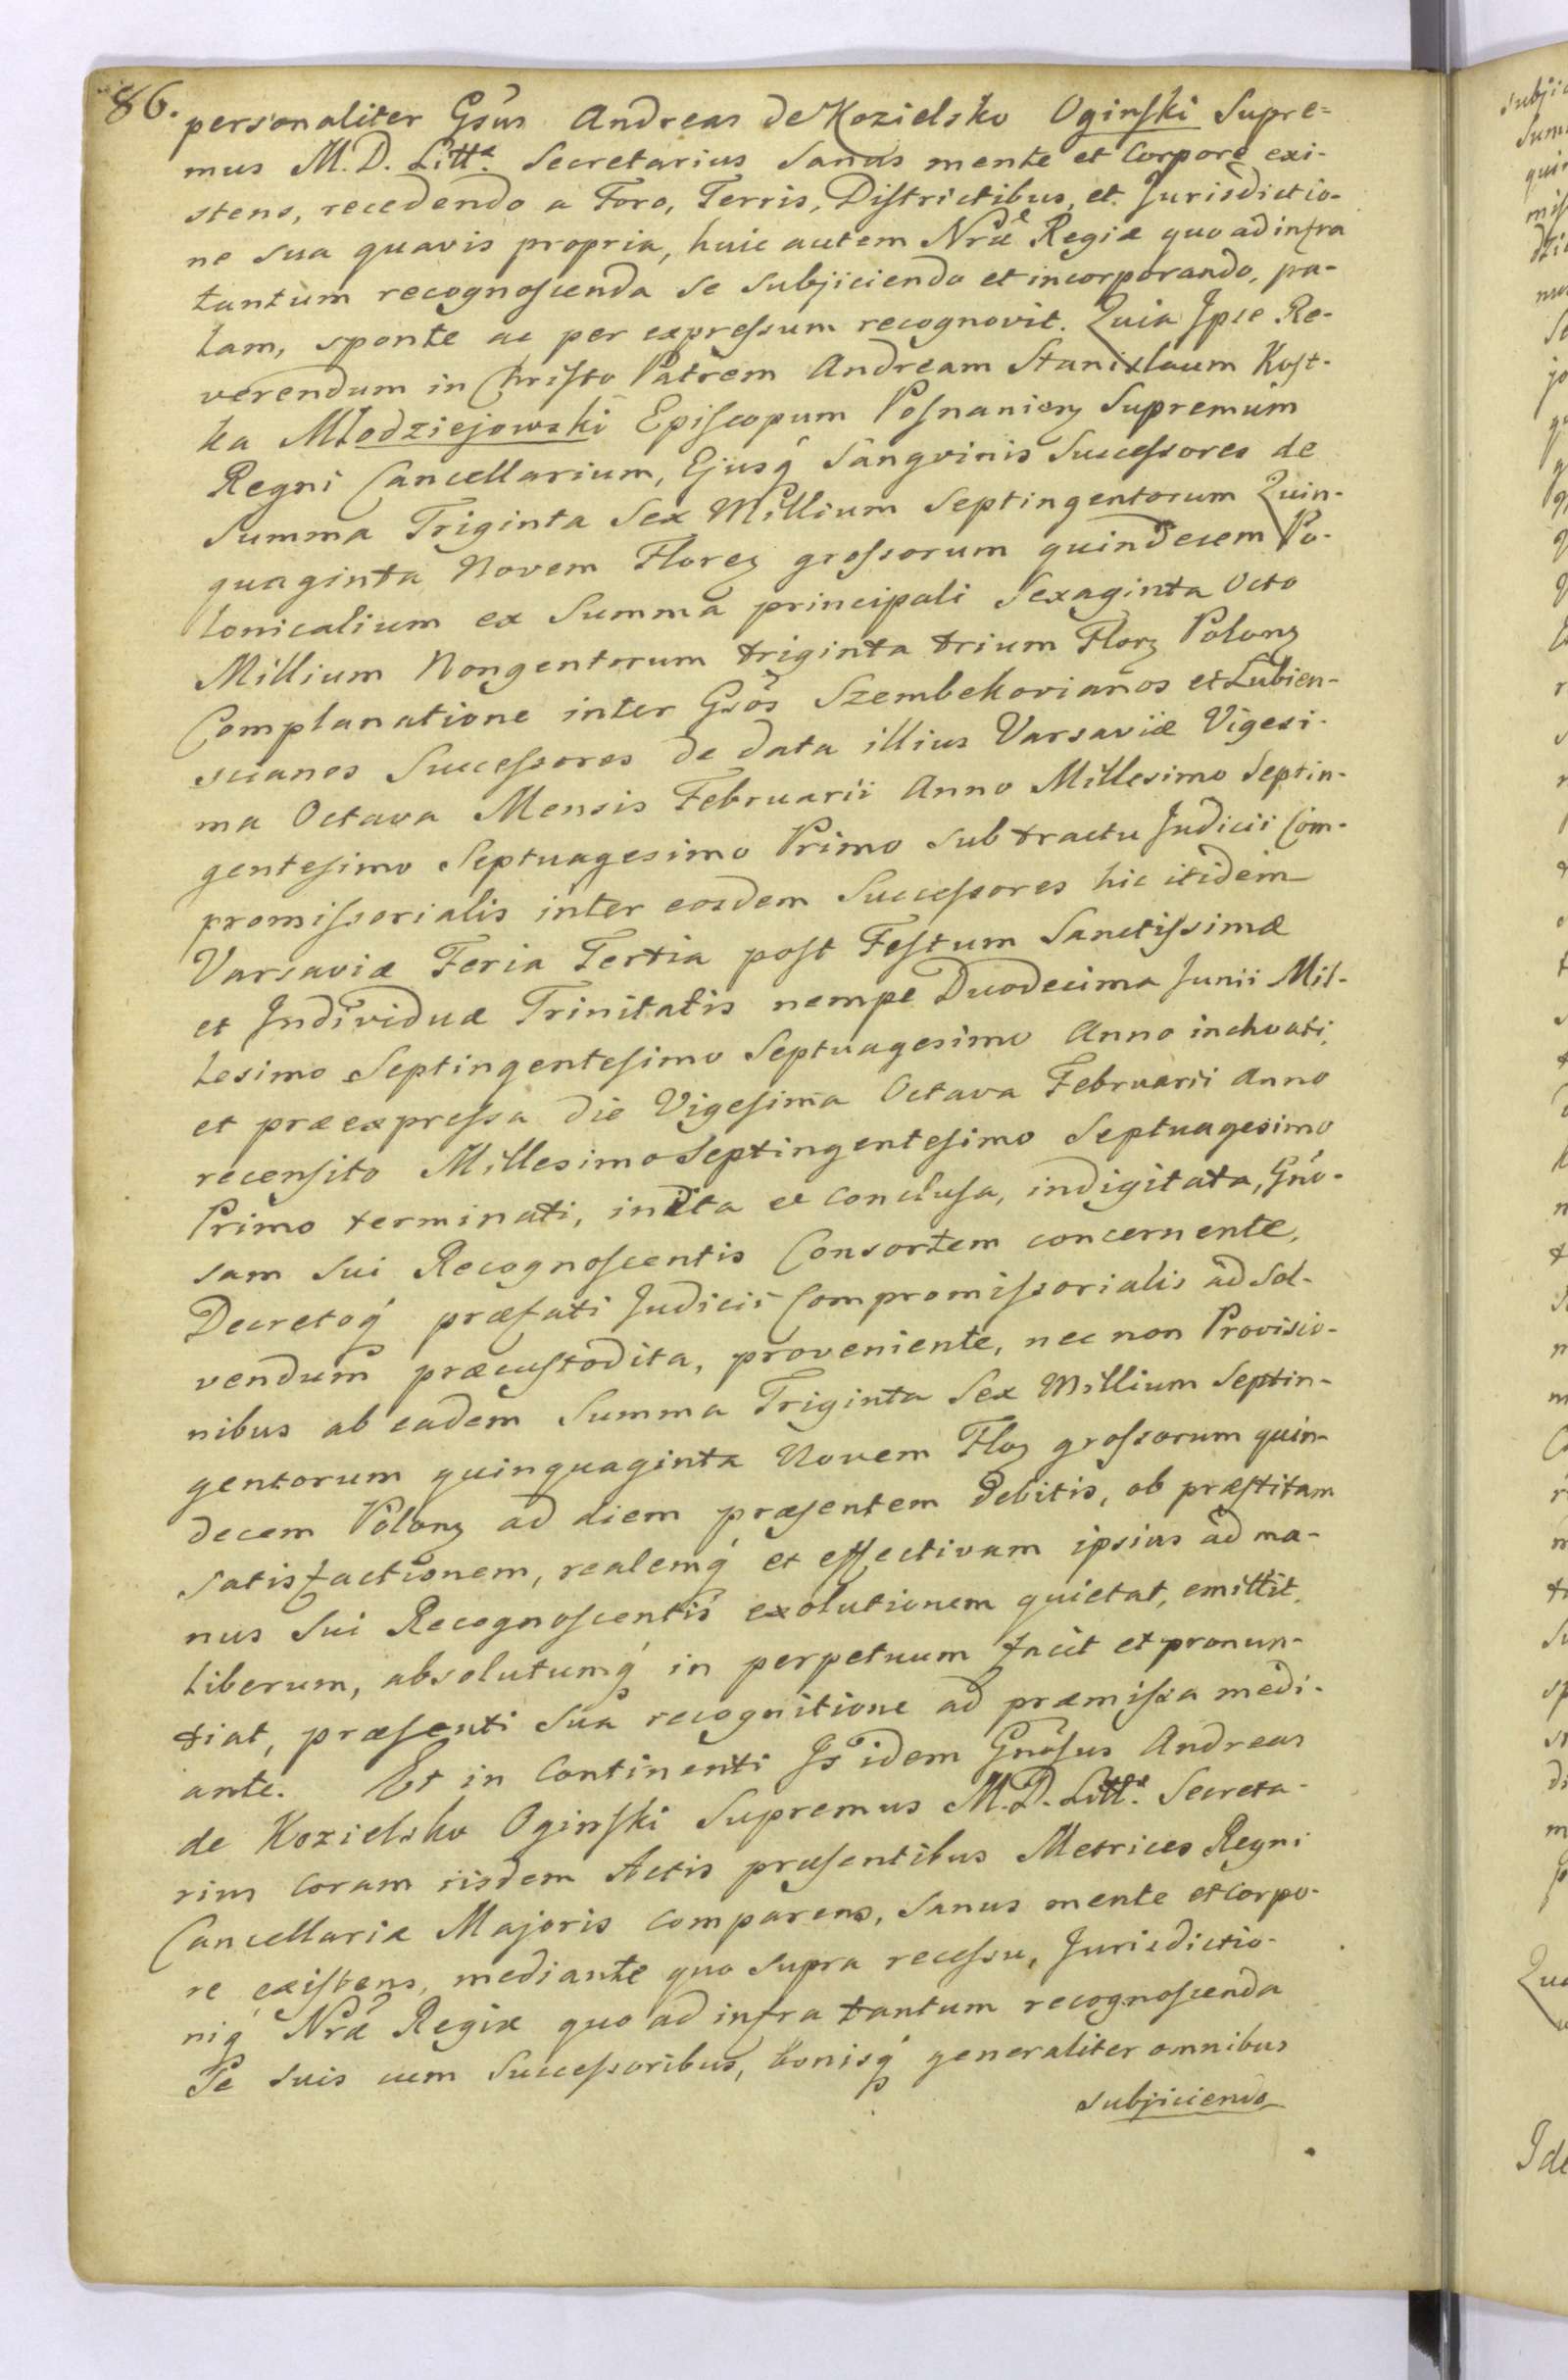 86.
personaliter Gsus Andreas de Kozielsko Oginski Supre=
mus M. D. Littæ. Secretarius Sanus mente et Corpore exi-
stens, recedendo a Foro, Terris, Districtibus, et Jurisdictio-
ne sua quavis propria, huic autem Nræ Regiæ quo ad infra
tantum recognoscenda se subjiciendo et incorporando, pa-
lam, sponte ac per expressum recognovit. Quia Ipse Re-
verendum in Christo Patrem Andream Stanislaum Kost-
ka Młodziejowski Episcopum Posnanien Supremum
Regni Cancellarium, Ejusq Sangvinis Successores de
Summa Triginta Sex Millium Septingentorum Quin-
quaginta Novem Floren grossorum quindecem Po-
lonicalium ex Summa principali Sexaginta Octo
Millium Nongentorum triginta trium Flor Polon
Complanatione inter Gsos Szembekovianos et Lubien-
scianos Successores de data illius Varsaviæ Vigesi-
ma Octava Mensis Februarii Anno Millesimo Septin-
gentesimo Septuagesimo Primo sub tractu Judicii Com-
promissorialis inter eosdem Successores hic itidem
Varsaviæ Feria Tertia post Festum Sanctissimæ
et Individuæ Trinitatis nempe Duodecima Junii Mil-
lesimo Septingentesimo Septuagesimo Anno inchoati,
et præexpressa die Vigesima Octava Februarii Anno
recensito Millesimo Septingentesimo Septuagesimo
Primo terminati, inita et conclusa, indigitata, Gno-
sam sui Recognoscentis Consortem concernente,
Decretoq præfati Judicii Compromissorialis ad sol-
vendum præcustodita, proveniente, nec non Provisio-
nibus ab eadem Summa Triginta Sex Millium Septin-
gentorum quinquaginta Novem Flo grossorum quin-
decem Polon ad diem præsentem debitis, ob præstitam
satisfactionem, realemq et effectivam ipsius ad ma-
nus sui Recognoscentis exolutionem quietat, emittit,
liberum, absolutumq in perpetuum facit et pronun-
tiat, præsenti sua recognitione ad præmissa medi-
ante. Et in Continenti Is idem Gnosus Andreas
de Kozielsko Oginski Supremus M. D. Littæ. Secreta-
rius coram iisdem Actis præsentibus Metrices Regni
Cancellariæ Majoris comparens, sanus mente et corpo-
re existens, mediante quo supra recessu, Jurisdictio-
niq Nræ Regiæ quo ad infra tantum recognoscenda
Se suis cum Successoribus, bonisq generaliter omnibus
subjiciendo